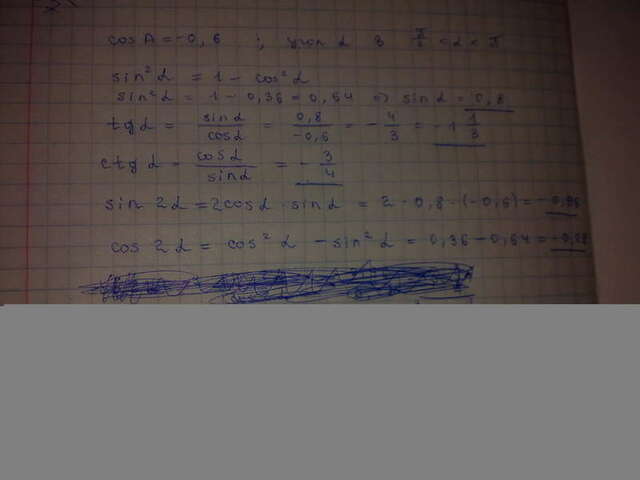 cos A = -0,6 ; угол α в π/2 < α < π
sin² α = 1 - cos² α
sin² α = 1 - 0,36 = 0,64 => sin α = 0,8
tg α = sin α / cos α = 0,8 / -0,6 = - 4/3 = -1 1/3
ctg α = cos α / sin α = - 3/4
sin 2α = 2cos α · sin α = 2 · 0,8 · (-0,6) = -0,96
cos 2α = cos² α - sin² α = 0,36 - 0,64 = -0,28